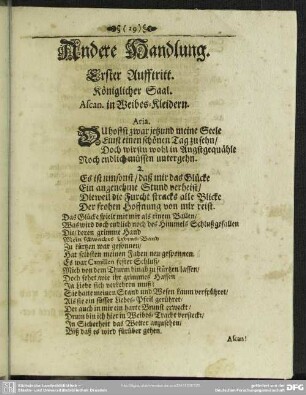 (19)
Andere Handlung.
Erster Aufftritt.
Königlicher Saal.
Ascan. in Weibes-Kleidern.
Aria.
DU hoffst zwar jetzund meine Seele
Einst einen schönen Tag zu sehn/
Doch wirstu wohl in Angstgequähle
Noch endlich müssen untergehn.
2.
Es ist umsonst/ daß mir das Glücke
Ein angenehme Stund verheist/
Dieweil die Furcht stracks alle Blicke
Der frohen Hoffnung von mir reist.
Das Glücke spielt mit mir als einem Ballen/
Was wird doch endlich noch des Himmels Schluß gefallen
Die/ deren grimme Hand
Mein schwaches Lebens-Band
Zu kürtzen war gesonnen/
Hat selbsten meinen Faden neu gesponnen.
Es war Camillen fester Schluß/
Mich von dem Thron hinab zu stürtzen lassen/
Doch sehet wie ihr grimmes Hassen
In Liebe sich verkehren muß!
Sie hatte meinen Stand und Wesen kaum verspühret/
Als sie ein süsser Liebes-Pfeil gerühret/
Der auch in mir ein harte Brunst erweckt/
Drum bin ich hier in Weibes-Tracht versteckt/
In Sicherheit das Wetter anzusehen/
Biß daß es wird fürüber gehen.
Ascan!